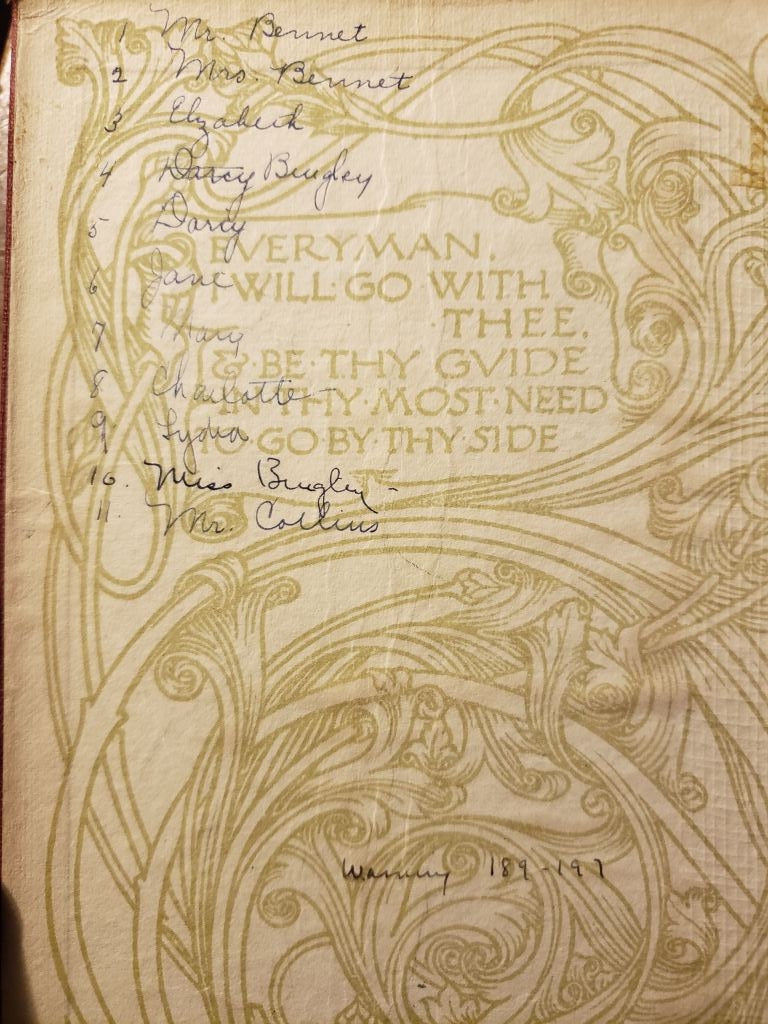 1 Mr. Bennet
2 Mrs. Bennet
3 Elizabeth
4 Darcy Bingley
5 Darcy
EVERYMAN.
6 Jane
I·WILL·GO WITH
·THEE.
7 Mary
&·BE·THY GVIDE
8 Charlotte -
IN·THY·MOST·NEED
9 Lydia
TO·GO·BY·THY·SIDE
10. Miss Bingley -
11. Mr. Collins
189-197